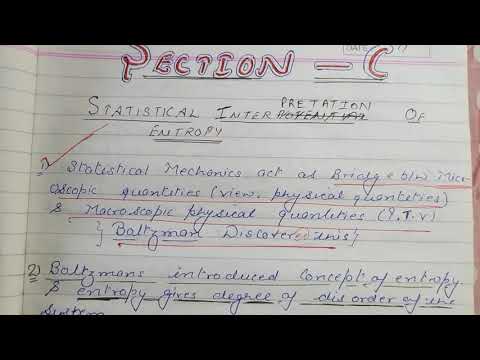 DATE
SECTION - C
STATISTICAL INTERPRETATION OF
ENTROPY
1) Statistical Mechanics act as Bridge b/w Micr-
oscopic quantities (view. physical quantities)
& Macroscopic physical quantities (P,T,V)
{ Boltzman Discovered this}
2) Boltzmans introduced concept of entropy
& entropy gives degree of disorder of the
system